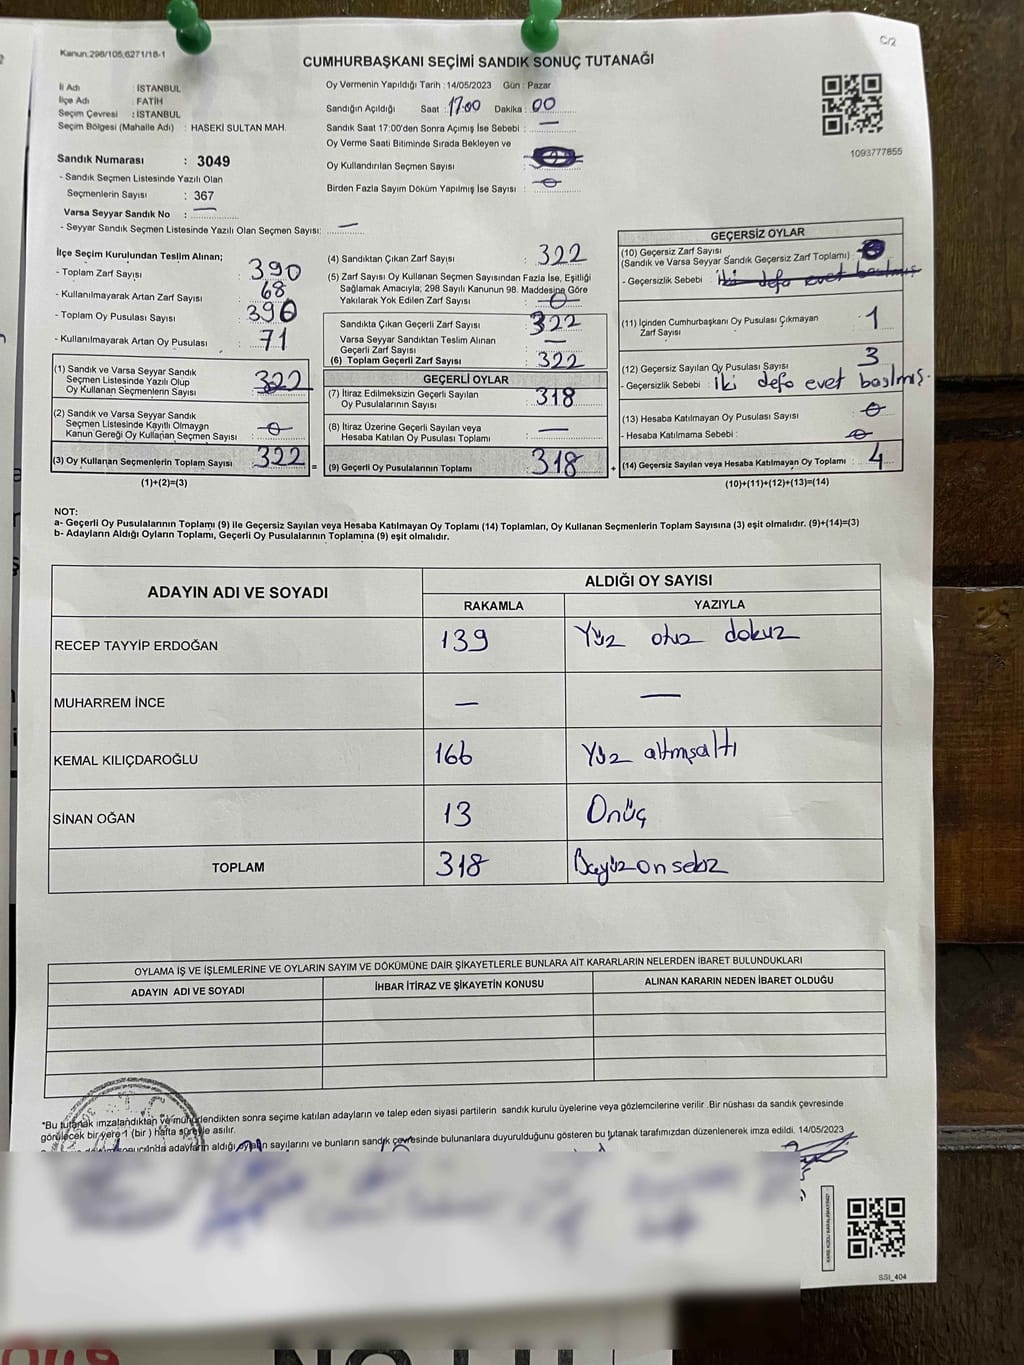 Kanun:298/105,6271/18-1
C/2
CUMHURBAŞKANI SEÇİMİ SANDIK SONUÇ TUTANAĞI
İl Adı : İSTANBUL
İlçe Adı : FATİH
Seçim Çevresi : İSTANBUL
Seçim Bölgesi (Mahalle Adı) : HASEKİ SULTAN MAH.
Sandık Numarası : 3049
- Sandık Seçmen Listesinde Yazılı Olan
Seçmenlerin Sayısı : 367
Varsa Seyyar Sandık No : —
- Seyyar Sandık Seçmen Listesinde Yazılı Olan Seçmen Sayısı: —
Oy Vermenin Yapıldığı Tarih : 14/05/2023 Gün : Pazar
Sandığın Açıldığı Saat : 17.00 Dakika : 00
Sandık Saat 17:00'den Sonra Açımış İse Sebebi : —
Oy Verme Saati Bitiminde Sırada Bekleyen ve
Oy Kullandırılan Seçmen Sayısı :
Birden Fazla Sayım Döküm Yapılmış İse Sayısı : 0
1093777855
İlçe Seçim Kurulundan Teslim Alınan;
- Toplam Zarf Sayısı : 390
- Kullanılmayarak Artan Zarf Sayısı : 68
- Toplam Oy Pusulası Sayısı : 390
- Kullanılmayarak Artan Oy Pusulası : 71
(1) Sandık ve Varsa Seyyar Sandık
Seçmen Listesinde Yazılı Olup
Oy Kullanan Seçmenlerin Sayısı : 322
(2) Sandık ve Varsa Seyyar Sandık
Seçmen Listesinde Kayıtlı Olmayan
Kanun Gereği Oy Kullanan Seçmen Sayısı : 0
(3) Oy Kullanan Seçmenlerin Toplam Sayısı : 322 =
(1)+(2)=(3)
(4) Sandıktan Çıkan Zarf Sayısı : 322
(5) Zarf Sayısı Oy Kullanan Seçmen Sayısından Fazla İse, Eşitliği
Sağlamak Amacıyla; 298 Sayılı Kanunun 98. Maddesine Göre
Yakılarak Yok Edilen Zarf Sayısı : 0
Sandıkta Çıkan Geçerli Zarf Sayısı : 322
Varsa Seyyar Sandıktan Teslim Alınan
Geçerli Zarf Sayısı : —
(6) Toplam Geçerli Zarf Sayısı : 322
GEÇERLİ OYLAR
(7) İtiraz Edilmeksizin Geçerli Sayılan
Oy Pusulalarının Sayısı : 318
(8) İtiraz Üzerine Geçerli Sayılan veya
Hesaba Katılan Oy Pusulası Toplamı : —
(9) Geçerli Oy Pusulalarının Toplamı : 318 +
GEÇERSİZ OYLAR
(10) Geçersiz Zarf Sayısı
(Sandık ve Varsa Seyyar Sandık Geçersiz Zarf Toplamı) :
- Geçersizlik Sebebi : iki defa evet basılmış
(11) İçinden Cumhurbaşkanı Oy Pusulası Çıkmayan
Zarf Sayısı : 1
(12) Geçersiz Sayılan Oy Pusulası Sayısı : 3
- Geçersizlik Sebebi : iki defa evet basılmış.
(13) Hesaba Katılmayan Oy Pusulası Sayısı : 0
- Hesaba Katılmama Sebebi : 0
(14) Geçersiz Sayılan veya Hesaba Katılmayan Oy Toplamı : 4
(10)+(11)+(12)+(13)=(14)
NOT:
a- Geçerli Oy Pusulalarının Toplamı (9) ile Geçersiz Sayılan veya Hesaba Katılmayan Oy Toplamı (14) Toplamları, Oy Kullanan Seçmenlerin Toplam Sayısına (3) eşit olmalıdır. (9)+(14)=(3)
b- Adayların Aldığı Oyların Toplamı, Geçerli Oy Pusulalarının Toplamına (9) eşit olmalıdır.
ADAYIN ADI VE SOYADI
ALDIĞI OY SAYISI
RAKAMLA YAZIYLA
RECEP TAYYİP ERDOĞAN 139 Yüz otuz dokuz
MUHARREM İNCE — —
KEMAL KILIÇDAROĞLU 166 Yüz altmışaltı
SİNAN OĞAN 13 Onüç
TOPLAM 318
OYLAMA İŞ VE İŞLEMLERİNE VE OYLARIN SAYIM VE DÖKÜMÜNE DAİR ŞİKAYETLERLE BUNLARA AİT KARARLARIN NELERDEN İBARET BULUNDUKLARI
ADAYIN ADI VE SOYADI İHBAR İTİRAZ VE ŞİKAYETİN KONUSU ALINAN KARARIN NEDEN İBARET OLDUĞU
*Bu tutanak imzalandıktan ve mühürlendikten sonra seçime katılan adayların ve talep eden siyasi partilerin sandık kurulu üyelerine veya gözlemcilerine verilir .Bir nüshası da sandık çevresinde
görülecek bir yere 1 (bir ) hafta süreyle asılır.
adayların aldığı oyların sayılarını ve bunların sandık çevresinde bulunanlara duyurulduğunu gösteren bu tutanak tarafımızdan düzenlenerek imza edildi. 14/05/2023
SSI_404